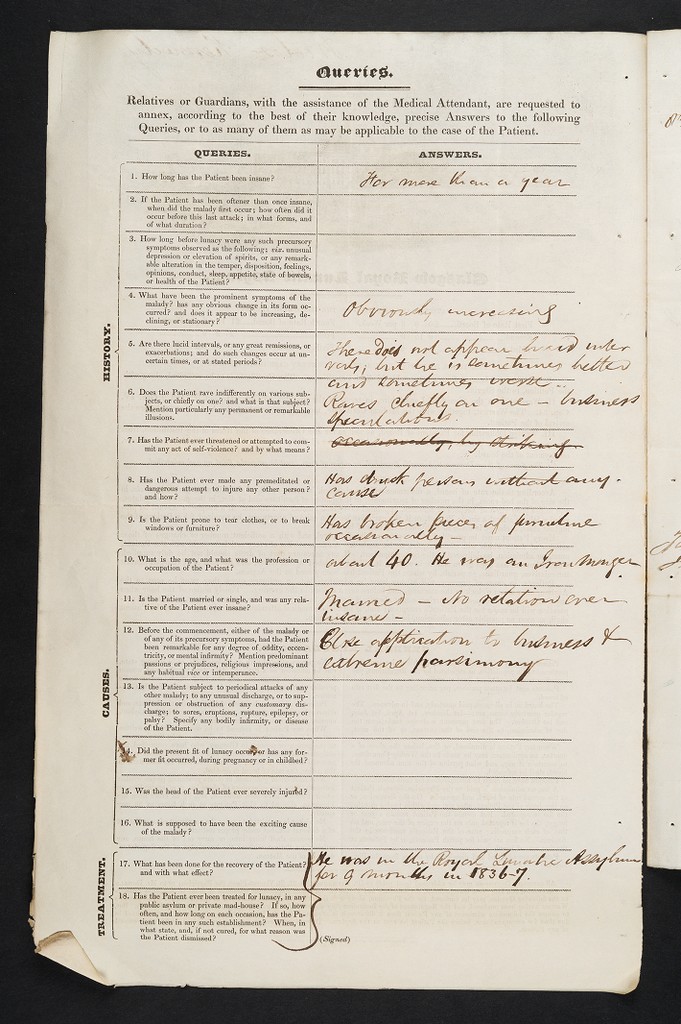 Queries.
Relatives or Guardians, with the assistance of the Medical Attendant, are requested to
annex, according to the best of their knowledge, precise Answers to the following
Queries, or to as many of them as may be applicable to the case of the Patient.
QUERIES.
ANSWERS.
HISTORY.
1. How long has the Patient been insane?
For more than a year
2. If the Patient has been oftener than once insane,
when did the malady first occur; how often did it
occur before this last attack; in what forms, and
of what duration?
3. How long before lunacy were any such precursory
symptoms observed as the following; viz. unusual
depression or elevation of spirits, or any remark-
able alteration in the temper, disposition, feelings,
opinions, conduct, sleep, appetite, state of bowels,
or health of the Patient?
4. What have been the prominent symptoms of the
malady? has any obvious change in its form oc-
curred? and does it appear to be increasing, de-
clining, or stationary?
Obviously increasing
5. Are there lucid intervals, or any great remissions, or
exacerbations; and do such changes occur at un-
certain times, or at stated periods?
There does not appear lucid inter
vals; but he is sometimes better
and sometimes worse..
6. Does the Patient rave indifferently on various sub-
jects, or chiefly on one? and what is that subject?
Mention particularly any permanent or remarkable
illusions.
Raves chiefly on one – business
speculations.
7. Has the Patient ever threatened or attempted to com-
mit any act of self-violence? and by what means?
occasionally, by striking
8. Has the Patient ever made any premeditated or
dangerous attempt to injure any other person?
and how?
Has struck persons without any.
cause
9. Is the Patient prone to tear clothes, or to break
windows or furniture?
Has broken pieces of furniture
occasionally –
CAUSES.
10. What is the age, and what was the profession or
occupation of the Patient?
about 40. He was an Iron Monger
11. Is the Patient married or single, and was any rela-
tive of the Patient ever insane?
Married – No relation ever
insane –
12. Before the commencement, either of the malady or
of any of its precursory symptoms, had the Patient
been remarkable for any degree of oddity, eccen-
tricity, or mental infirmity? Mention predominant
passions or prejudices, religious impressions, and
any habitual vice or intemperance.
Close application to business &
extreme parsimony
13. Is the Patient subject to periodical attacks of any
other malady; to any unusual discharge, or to sup-
pression or obstruction of any customary dis-
charge; to sores, eruptions, rupture, epilepsy, or
palsy? Specify any bodily infirmity, or disease
of the Patient.
14. Did the present fit of lunacy occur, or has any for-
mer fit occurred, during pregnancy or in childbed?
15. Was the head of the Patient ever severely injured?
16. What is supposed to have been the exciting cause
of the malady?
TREATMENT.
17. What has been done for the recovery of the Patient?
and with what effect?
He was in the Royal Lunatic Assylum
for 9 months in 1836-7.
18. Has the Patient ever been treated for lunacy, in any
public asylum or private mad-house? If so, how
often, and how long on each occasion, has the Pa-
tient been in any such establishment? When, in
what state, and, if not cured, for what reason was
the Patient dismissed?
(Signed)